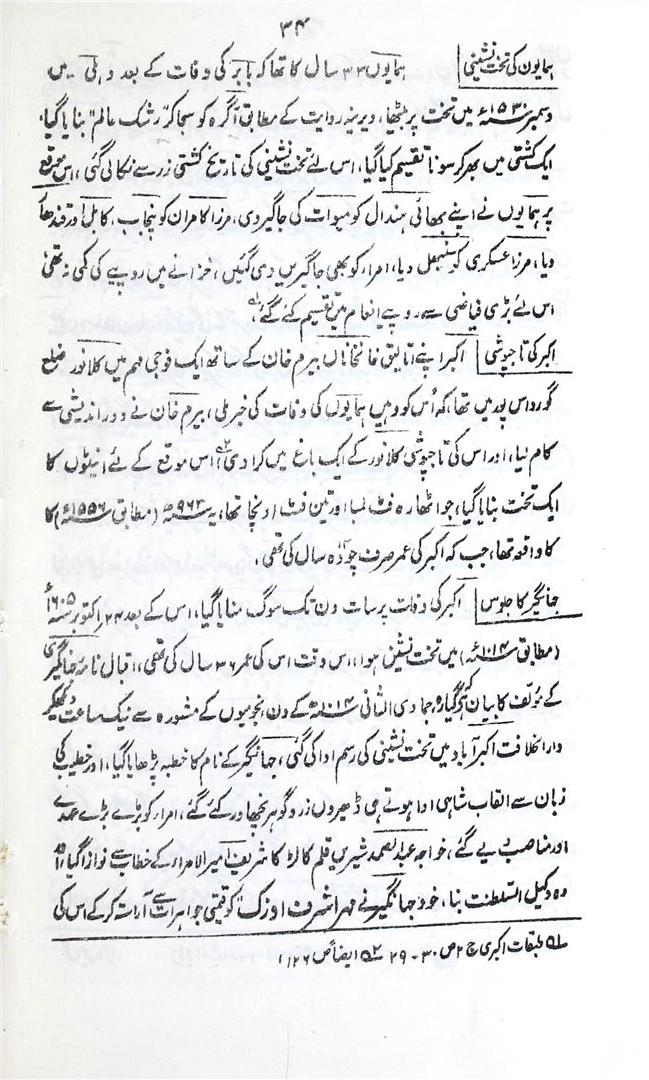 ۳۴
ہمایون کی تخت نشینی ہمایوں ۲۳ سال کا تھا کہ بابر کی وفات کے بعد دہلی میں
دسمبر ۱۵۳۰ء میں تخت پر بیٹھا، دیرینہ روایت کے مطابق آگرہ کو سجا کر "رشک عالم" بنایا گیا،
ایک کشتی میں بھر کر سونا تقسیم کیا گیا، اس لئے تخت نشینی کی تاریخ کشتی زر سے نکالی گئی، اس موقع
پر ہمایوں نے اپنے بھائی ہندال کو میوات کی جاگیر دی، مرزا کامران کو پنجاب، کابل اور قندھا
دیا، مرزا عسکری کو سنبھل دیا، امراء کو بھی جاگیریں دی گئیں، خزانے میں روپے کی کمی نہ تھی
اس لئے بڑی فیاضی سے روپے انعام میں تقسیم کئے گئے،
اکبر کی تاجپوشی اکبر اپنے اتالیق خانخاناں بیرم خان کے ساتھ ایک فوجی مہم میں کلانور ضلع
گورداسپور میں تھا، کہ اُس کو وہیں ہمایوں کی وفات کی خبر ملی، بیرم خان نے دور اندیشی سے
کام لیا، اور اس کی تاجپوشی کلانور کے ایک باغ میں کرادی، اس موقع کے لئے اینٹوں کا
ایک تخت بنایا گیا، جو اٹھارہ فٹ لمبا اور تین فٹ اونچا تھا، یہ ۹۶۳ھ (مطابق ۱۵۵۶ء) کا
کا واقعہ تھا، جب کہ اکبر کی عمر صرف چودہ سال کی تھی،
جہانگیر کا جلوس اکبر کی وفات پر سات دن تک سوگ منایا گیا، اس کے بعد ۲۴ اکتوبر ۱۶۰۵ء
(مطابق ۱۰۱۴ھ) میں تخت نشین ہوا، اس وقت اس کی عمر ۳۶ سال کی تھی، اقبال نامہ جہانگیری
کے مؤلف کا بیان ہے کہ گیارہ جمادی الثانی ۱۰۱۴ھ کے دن نجومیوں کے مشورہ سے نیک ساعت دیکھکر
دارالخلافت اکبرآباد میں تخت نشینی کی رسم ادا کی گئی، جہانگیر کے نام کا خطبہ پڑھایا گیا، اور خطیب کی
زبان سے القاب شاہی ادا ہوتے ہی ڈھیروں زر و گوہر نچھاور کئے گئے، امراء کو بڑے بڑے عہدے
اور مناصب دیے گئے، خواجہ عبدالصمد شیریں قلم کا لڑکا شریف امیر الامراء کے خطاب سے نوازا گیا، اور
وہ وکیل السلطنت بنا، خود جہانگیر نے مہر اشرف اوزک کو قیمتی جواہرات سے آراستہ کر کے اس کی
۱؎ طبقات اکبری ج ۲ ص ۳۰-۲۹ ۲؎ ایضاً ص ۱۲۶،